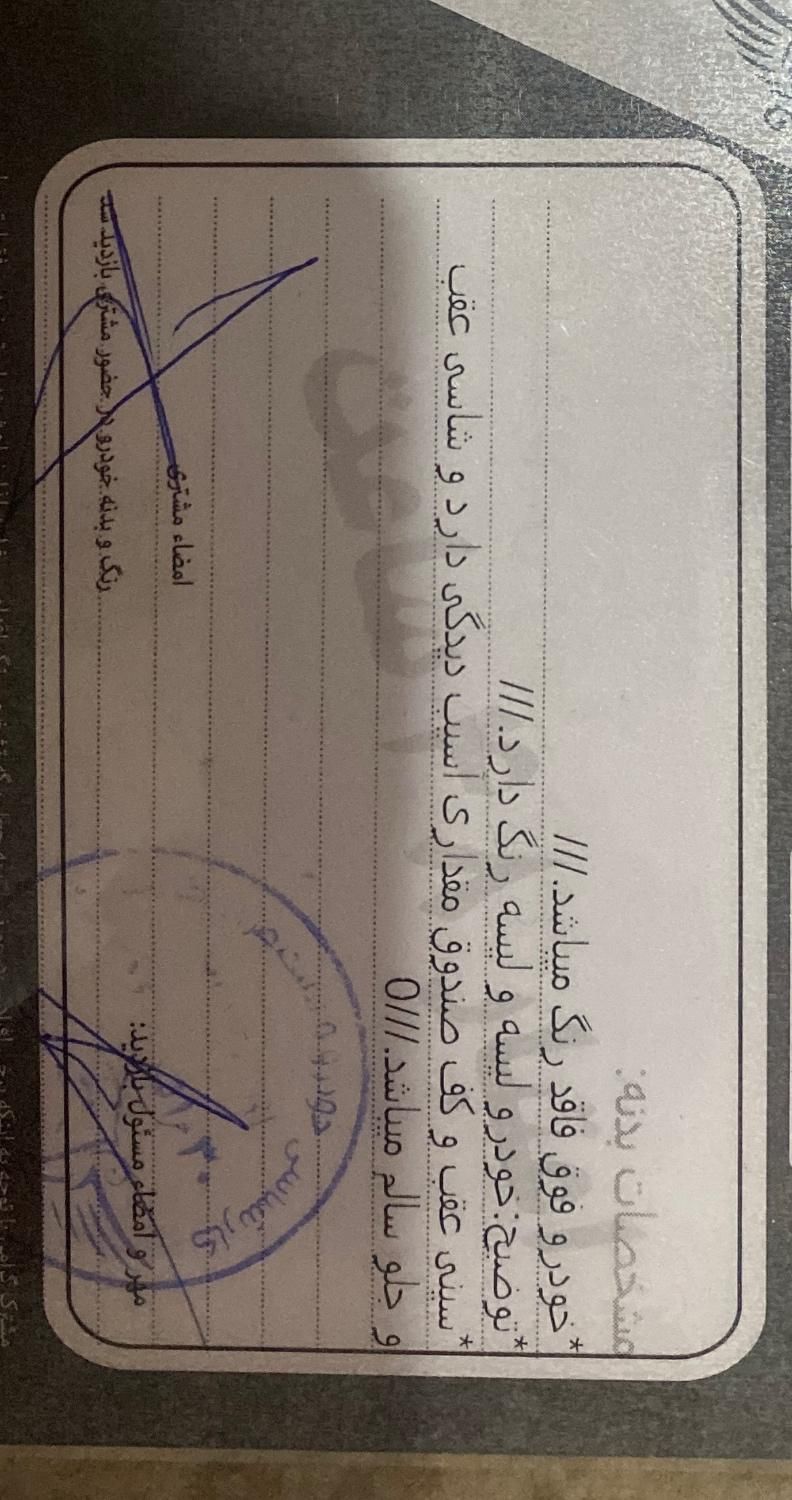 مشخصات بدنه:
*خودرو فوق فاقد رنگ میباشد.///
*توضیح:خودرو لیسه و لیسه رنگ دارد.///
*سینی عقب و کف صندوق مقداری آسیب دیدگی دارد و شاسی عقب
و جلو سالم میباشد.///0
مهر و امضاء مسئول بازدید:
امضاء مشتری
رنگ و بدنه خودرو در حضور مشتری بازدید شد